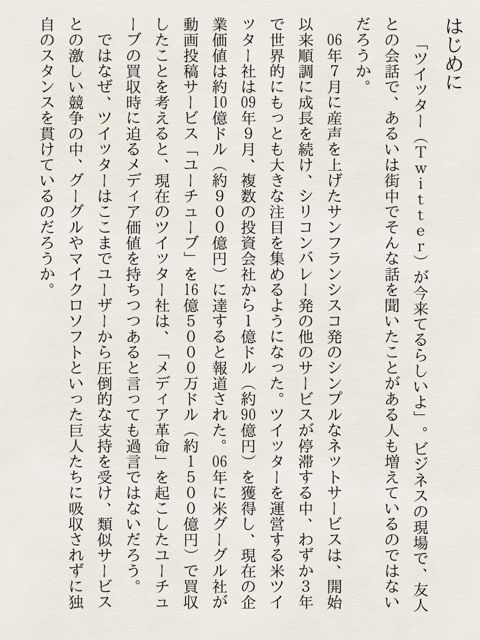 はじめに
「ツイッター(Twitter)が今来てるらしいよ」。ビジネスの現場で、友人
との会話で、あるいは街中でそんな話を聞いたことがある人も増えているのではない
だろうか。
06年7月に産声を上げたサンフランシスコ発のシンプルなネットサービスは、開始
以来順調に成長を続け、シリコンバレー発の他のサービスが停滞する中、わずか3年
で世界的にもっとも大きな注目を集めるようになった。ツイッターを運営する米ツイ
ッター社は09年9月、複数の投資会社から1億ドル(約90億円)を獲得し、現在の企
業価値は約10億ドル(約900億円)に達すると報道された。06年に米グーグル社が
動画投稿サービス「ユーチューブ」を16億5000万ドル(約1500億円)で買収
したことを考えると、現在のツイッター社は、「メディア革命」を起こしたユーチュ
ーブの買収時に迫るメディア価値を持ちつつあると言っても過言ではないだろう。
ではなぜ、ツイッターはここまでユーザーから圧倒的な支持を受け、類似サービス
との激しい競争の中、グーグルやマイクロソフトといった巨人たちに吸収されずに独
自のスタンスを貫けているのだろうか。